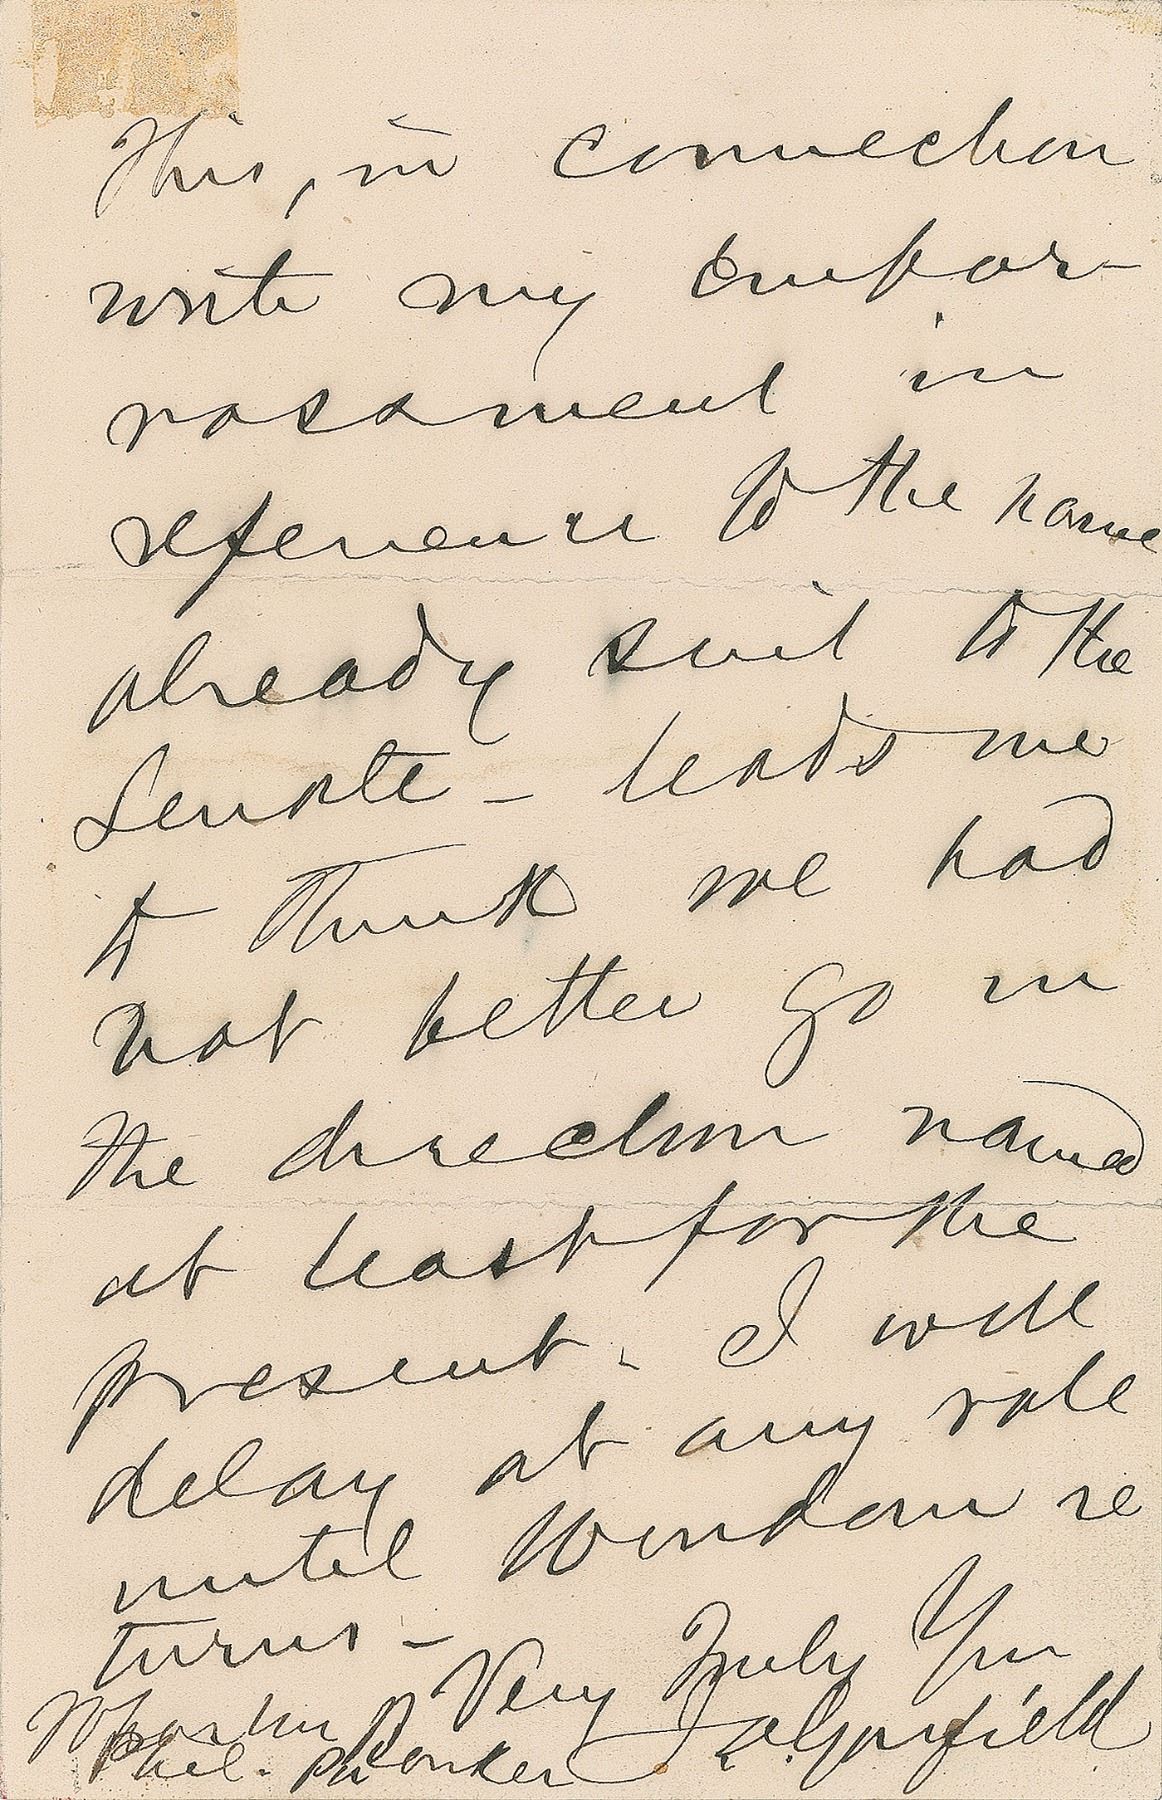 This, in connection
with my embar-
rassment in
reference to the name
already sent to the
Senate - leads me
to think we had
not better go in
the direction named
at least for the
present. I will
delay at any rate
until Windom re
turns -
Very Truly Yrs
J. A. Garfield